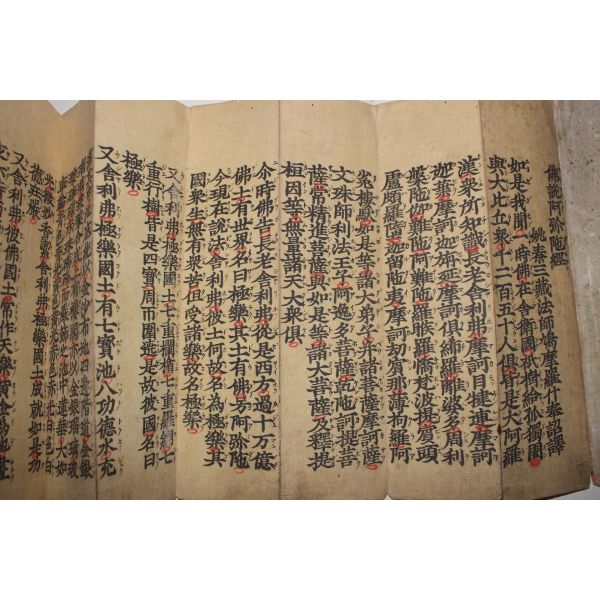 佛說阿弥陀經
姚秦三藏法師鳩摩羅什奉詔譯
如是我聞一時佛在舍衛國祇樹給孤獨園
與大比丘衆千二百五十人俱皆是大阿羅
漢衆所知識長老舍利弗摩訶目揵連摩訶
迦葉摩訶迦旃延摩訶俱絺羅離婆多周利
槃陀伽難陀阿難陀羅睺羅憍梵波提賓頭
盧頗羅墮迦留陀夷摩訶劫賓那薄拘羅阿
㝹樓駄如是等諸大弟子并諸菩薩摩訶薩
文殊師利法王子阿逸多菩薩乾陀訶提菩
薩常精進菩薩與如是等諸大菩薩及釋提
桓因等無量諸天大衆俱
尒時佛告長老舍利弗從是西方過十万億
佛土有世界名曰極樂其土有佛号阿弥陀
今現在說法舍利弗彼土何故名為極樂其
國衆生無有衆苦但受諸樂故名極樂
又舍利弗極樂國土七重欄楯七重羅網七
重行樹皆是四寶周帀圍繞是故彼國名曰
極樂
又舍利弗極樂國土有七寶池八功德水充
滿其中池底純以金沙布地四邊階道金銀
又舍利弗彼佛國土常作天樂黃金為地晝